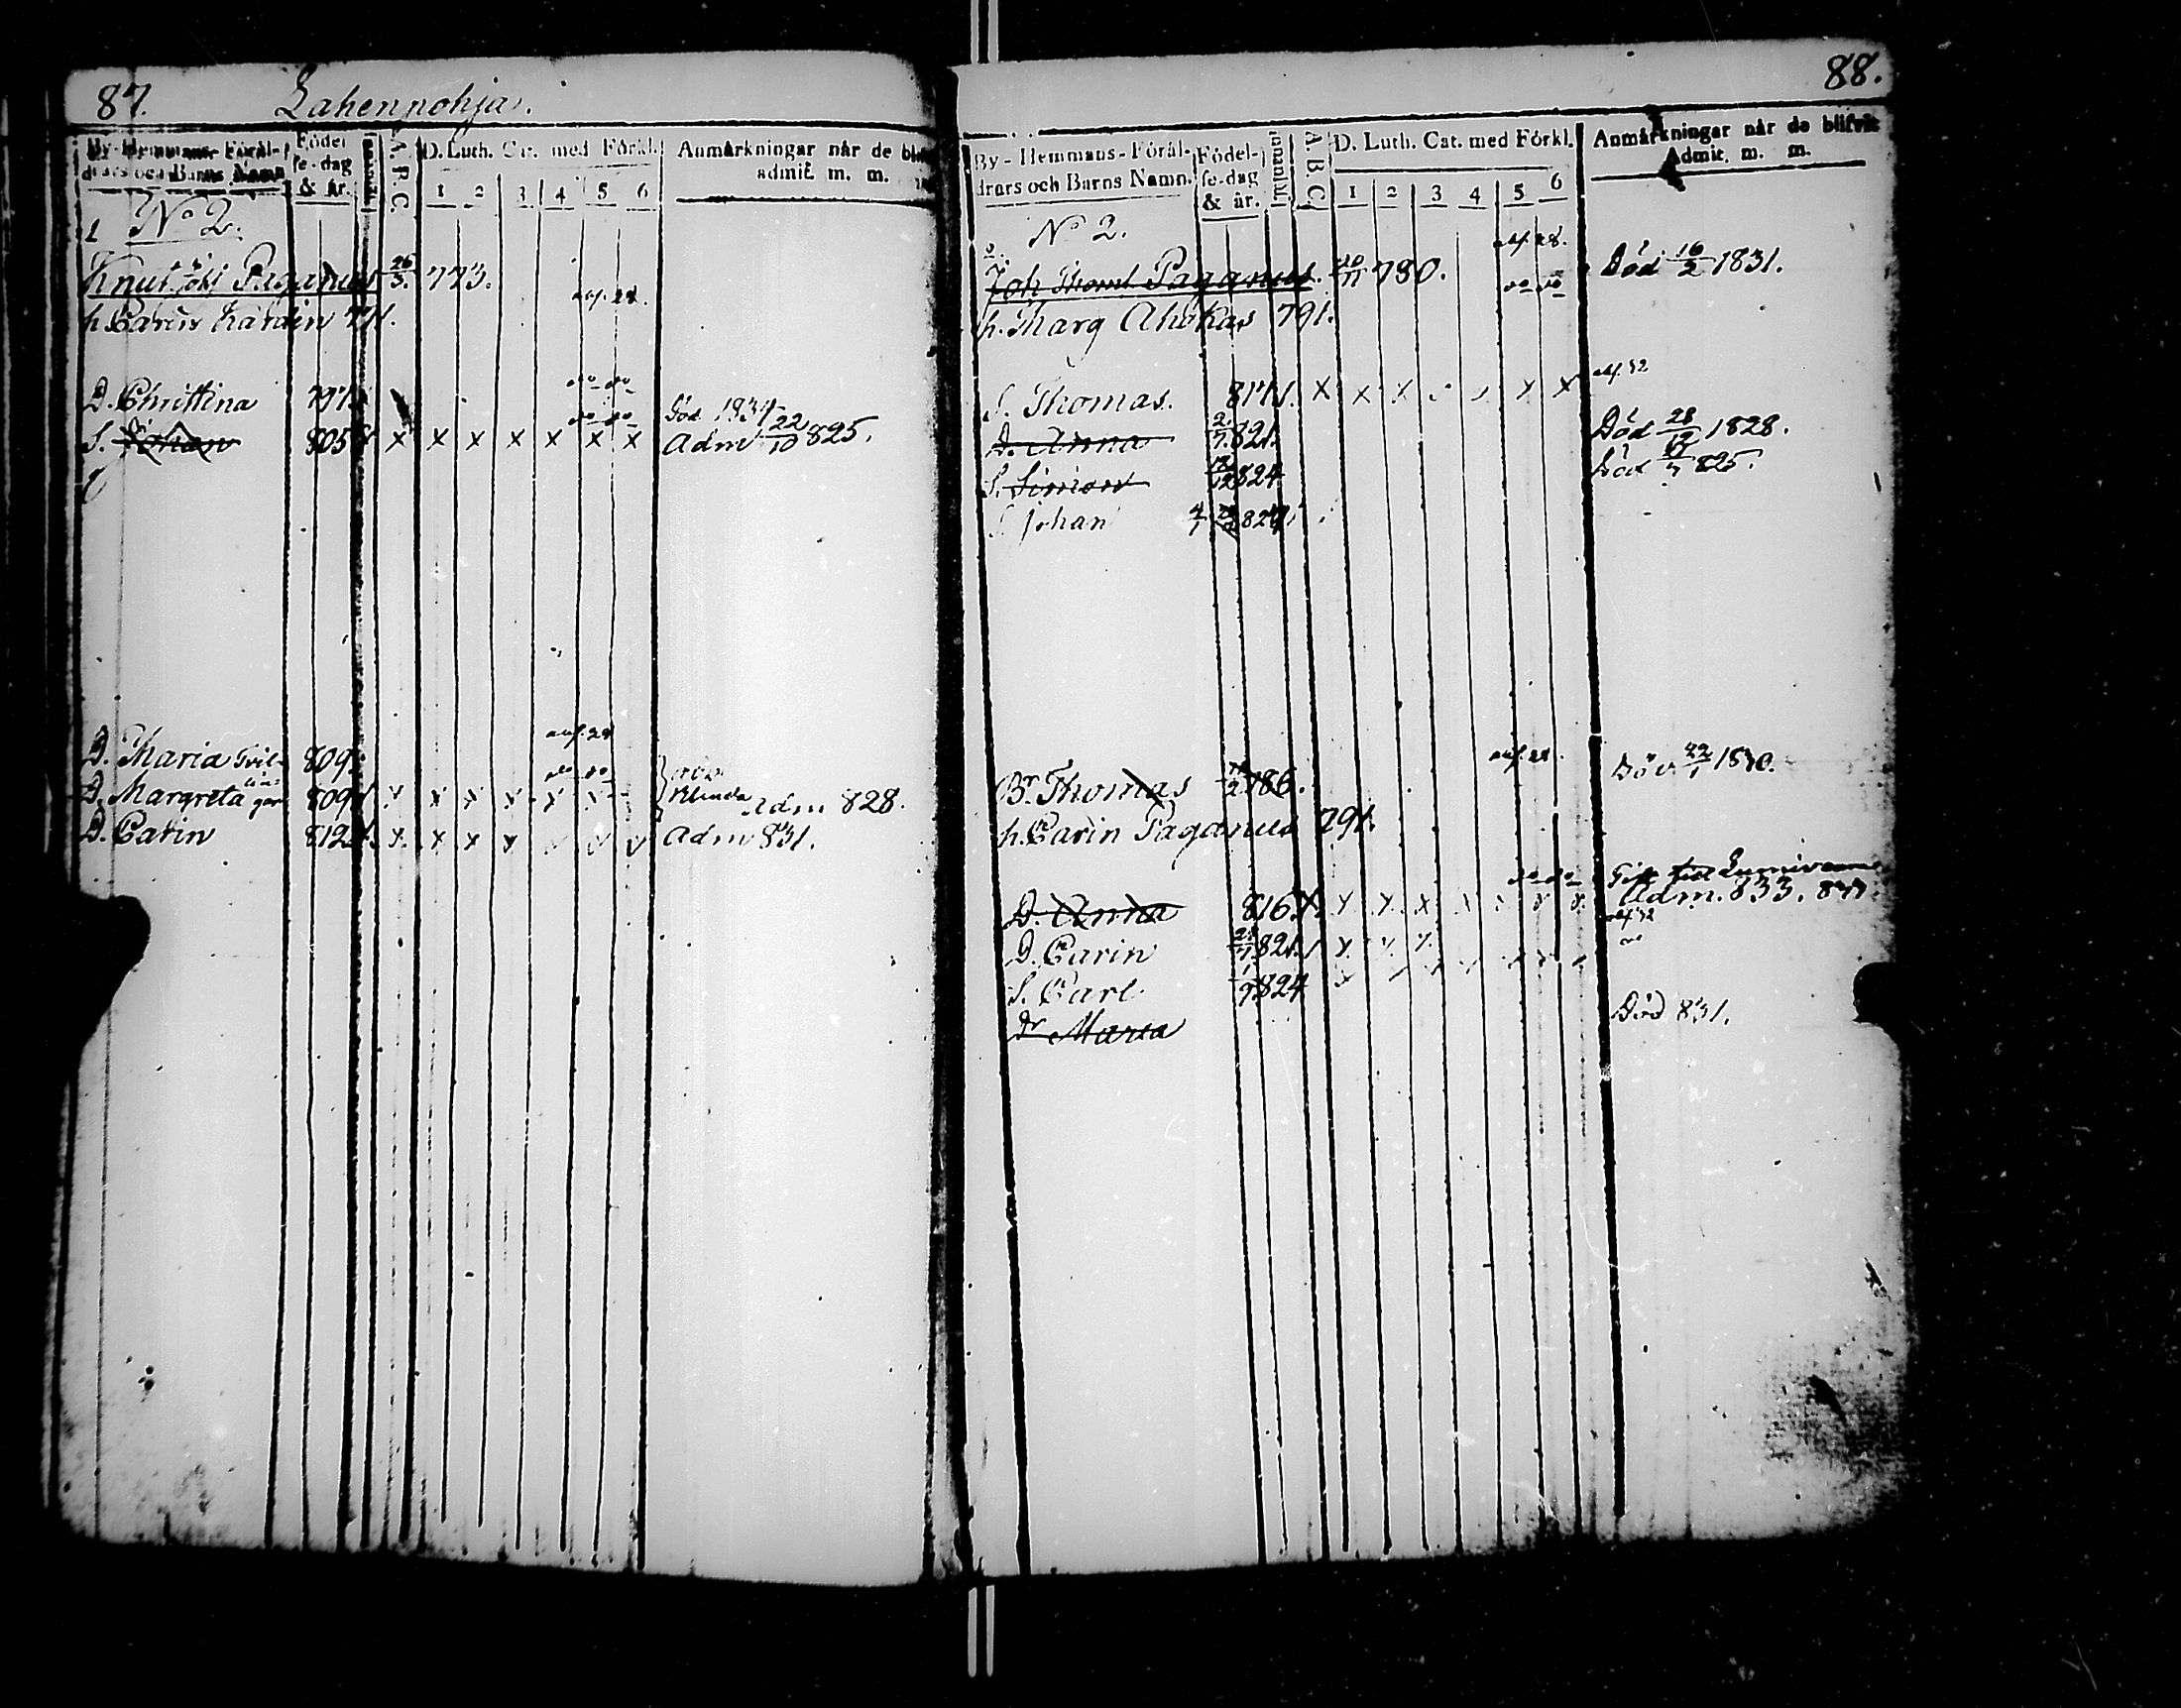 87. Lahenpohja.
By-Hemmans-Föräl-drars och Barns Namn Födel-se-dag & år. A. B. C. D. Luth. Cat. med Förkl. 1 2 3 4 5 6 Anmärkningar når de blif admit. m. m.
1 No 2.
Knut Paganus 26/3. 773.
h. Carin 771.
D. Christina 797 do do
S. Johan 805 x x x x x x x Död 1834 Adm 22/10 825.
D. Maria Tvil- 809
D. Margreta lingar 809 x x x x x x Blinda Adm 828.
D. Carin 812 x. x x x v v v Adm 831.
88.
By-Hemmans-Föräl-drars och Barns Namn. Födel-se-dag & år. A. B. C. D. Luth. Cat. med Förkl. 1 2 3 4 5 6 Anmärkningar når de blifvit Admit. m. m.
2 No 2.
Joh Thoms Paganus. 20/11 780. Död 16/2 1831.
h. Marg Ahokas 791. do do
S. Thomas. 817 x x x x x
D. Anna 2/7. 821. Död 28/12 1828.
S. Simon 824 Död 825.
S. Johan 827.
Br. Thomas 786. Död 22/1 1830.
h. Carin Paganus 791.
D. Anna 816. x x x x do do Adm. 833.
D. Carin 821. x x x
S. Carl 1/9 824
Dr Maria Död 831.